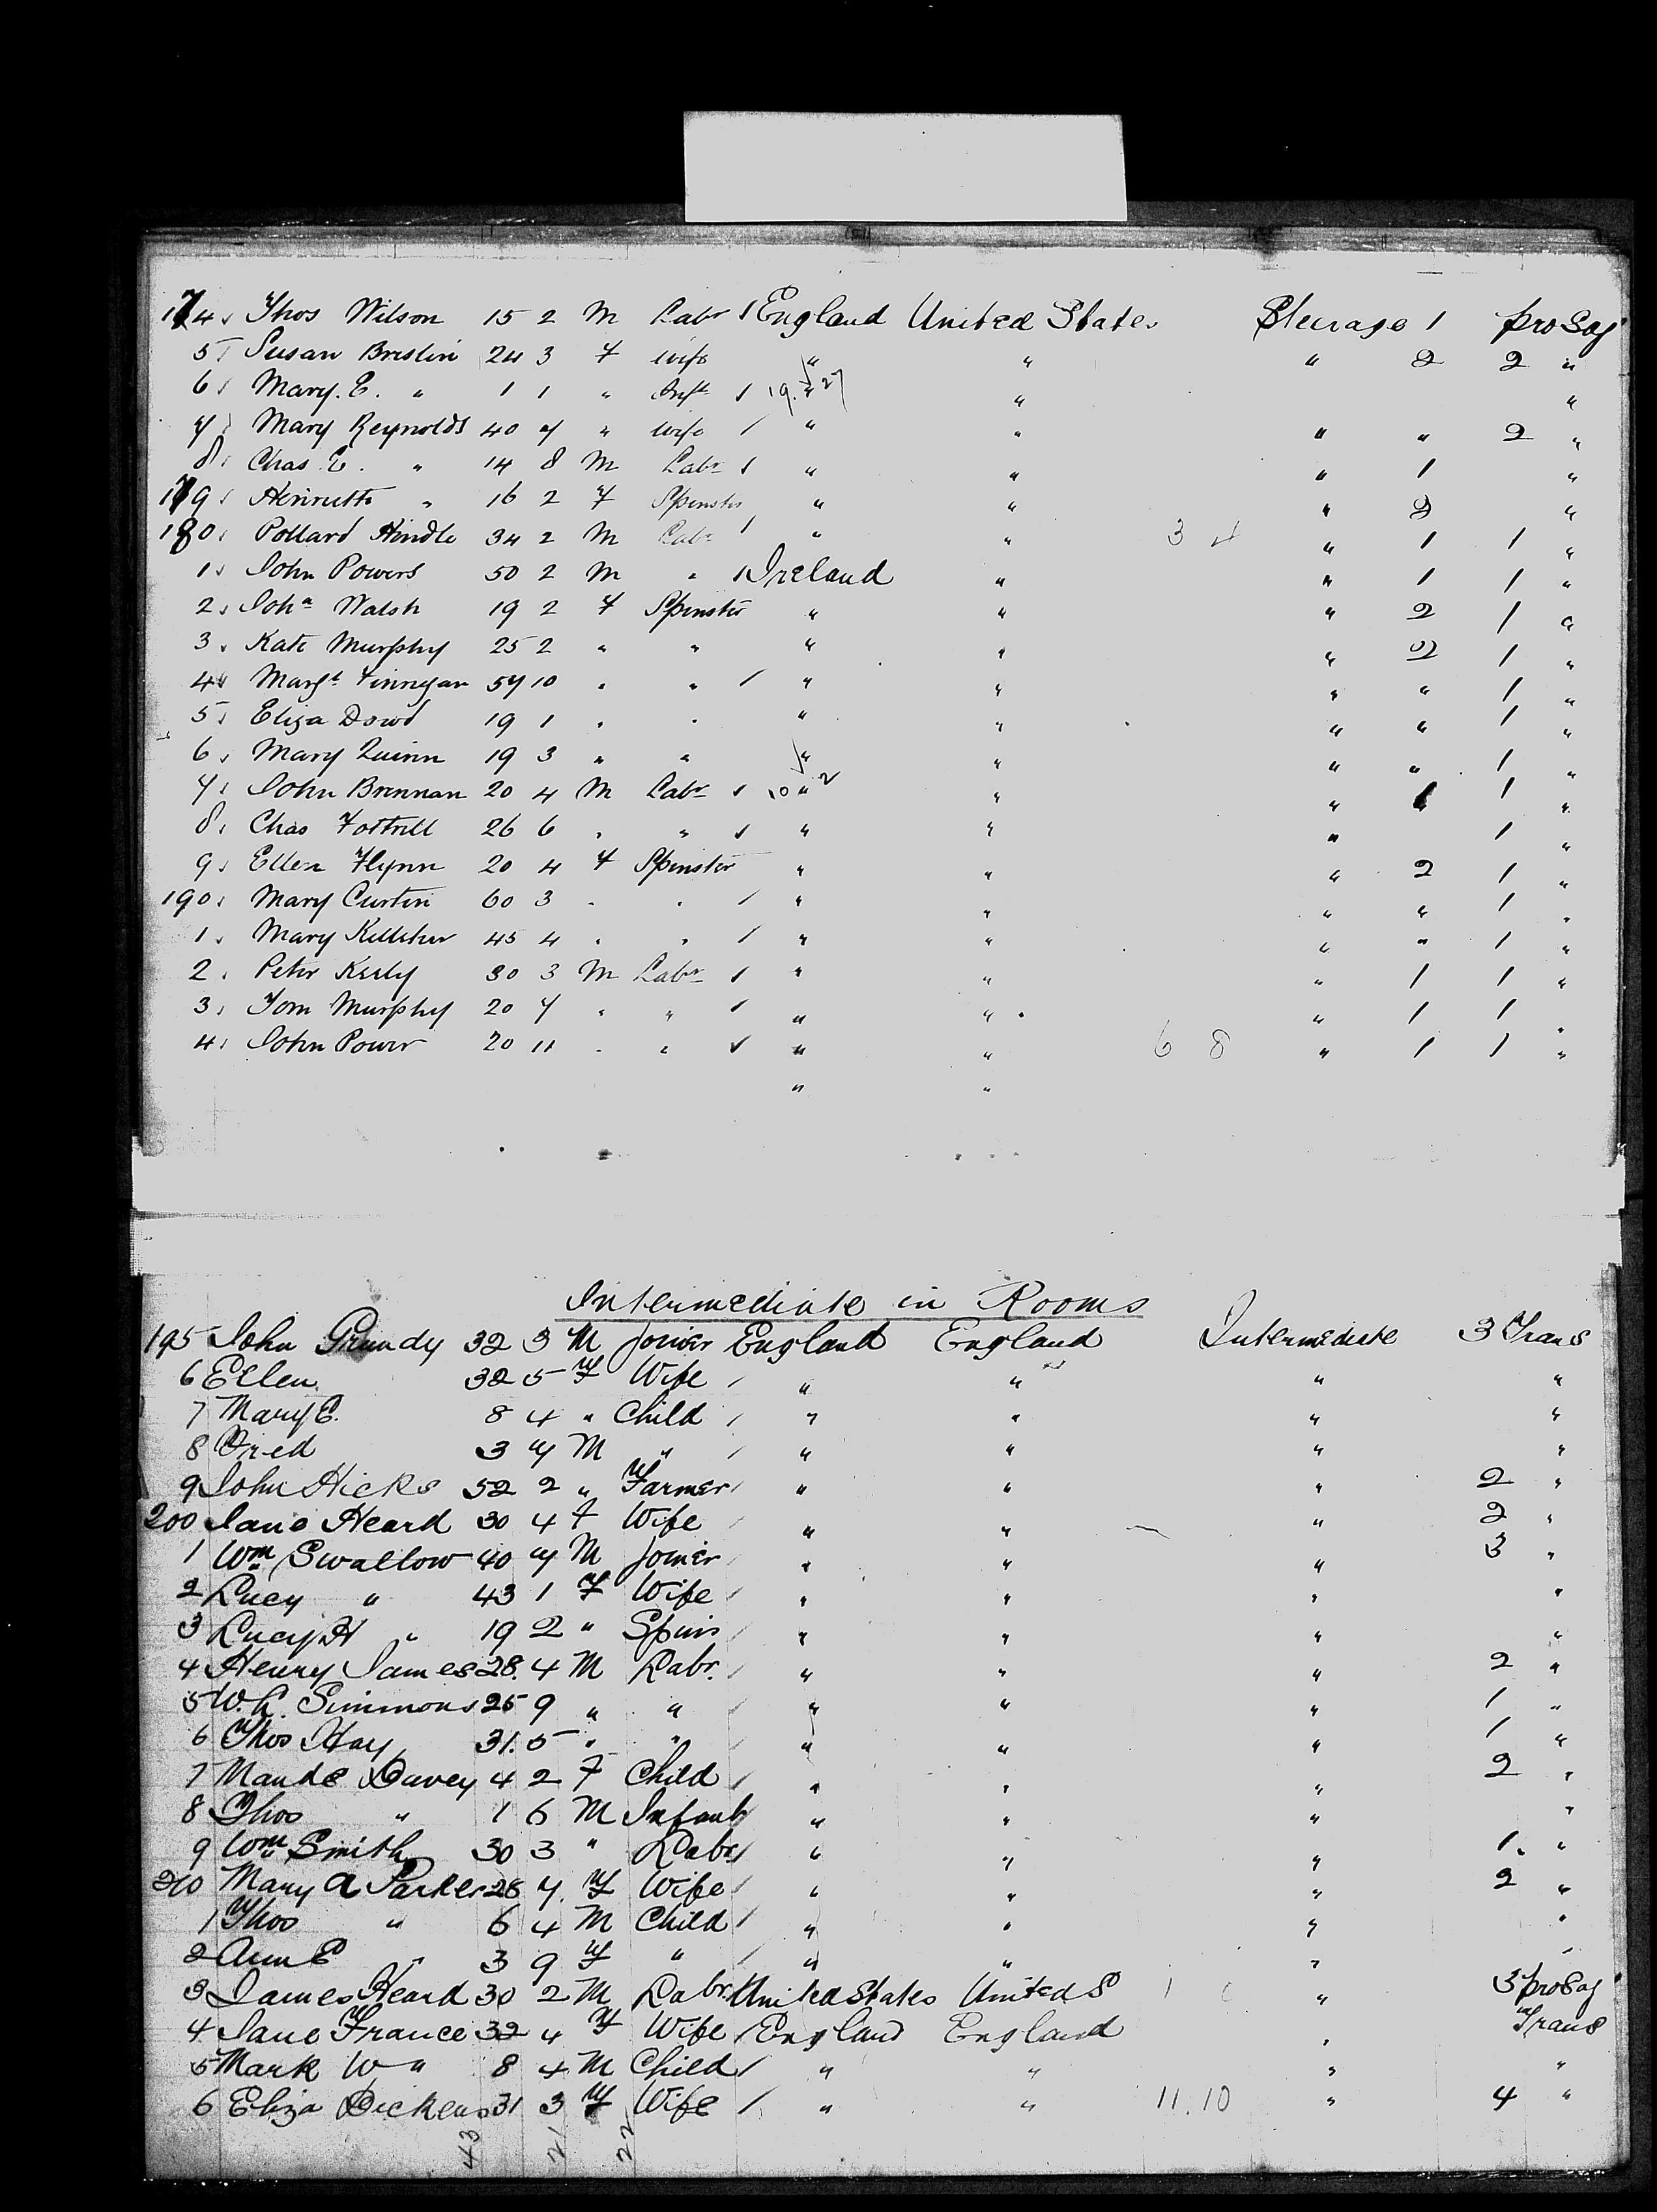 174 Thos Wilson 15 2 M Labr 1 England United States Steerage 1 pro Soj
5 Susan Breslin 24 3 F wife " " " 2 2 "
6 Mary. E. " 1 1 " Inft 1 19. " 27 " "
7 Mary Reynolds 40 7 " wife / " " " " 2 "
8 Chas E. " 14 8 M Labr 1 " " " 1 "
179 Henrietta " 16 2 F Spinster " " " 2 "
180 Pollard Hindle 34 2 M Labr 1 " " 3 4 " 1 1 "
1 John Powers 50 2 M " 1 Ireland " " 1 1 "
2 Joha Walsh 19 2 F Spinster " " " 2 1 "
3 Kate Murphy 25 2 " " " " " 2 1 "
4 Margt Finnegan 57 10 " " / " " " " 1 "
5 Eliza Dowd 19 1 " " " " " " 1 "
6 Mary Quinn 19 3 " " " " " " 1 "
7 John Brennan 20 4 M Labr 1 10 " 2 " " 1 1 "
8 Chas Fottrell 26 6 " " 1 " " " 1 "
9 Ellen Flynn 20 4 F Spinster " " " 2 1 "
190 Mary Curtin 60 3 " " / " " " " 1 "
1 Mary Kelleher 45 4 " " / " " " " 1 "
2 Peter Keely 30 3 M Labr / " " " 1 1 "
3 Tom Murphy 20 7 " " / " " " 1 1 "
4 John Power 20 11 " " / " " 6 8 " 1 1 "
" "
Intermediate in Rooms
195 John Grundy 32 3 M Joiner England England Intermediate 3 Trans
6 Ellen 32 5 F Wife / " " " "
7 Mary E. 8 4 " Child / " " " "
8 Fred 3 7 M " / " " " "
9 John Hicks 52 2 " Farmer / " " " 2 "
200 Jane Heard 30 4 F Wife / " " " 2 "
1 Wm Swallow 40 7 M Joiner / " " " 3 "
2 Lucy " 43 1 F Wife / " " " "
3 Lucy H " 19 2 " Spins / " " " "
4 Henry James 28. 4 M Labr. / " " " 2 "
5 W. C. Simmons 25 9 " " / " " " 1 "
6 Thos Hay 31. 5 " " / " " " 1 "
7 Maude Davey 4 2 F Child / " " " 2 "
8 Thos " 1 6 M Infant / " " " "
9 Wm Smith 30 3 " Labr / " " " 1. "
210 Mary A Parker 28 7. F Wife / " " " 2 "
1 Thos " 6 4 M Child / " " " "
2 Ann E " 3 9 F " / " " " "
3 James Heard 30 2 M Labr. United States United S 1 " 3 pro Soj
4 Jane France 32 4 F Wife / England England " Trans
5 Mark W " 8 4 M Child / " " " "
6 Eliza Dickens 31 3 F Wife / " " 11. 10 " 4 "
43 21 22